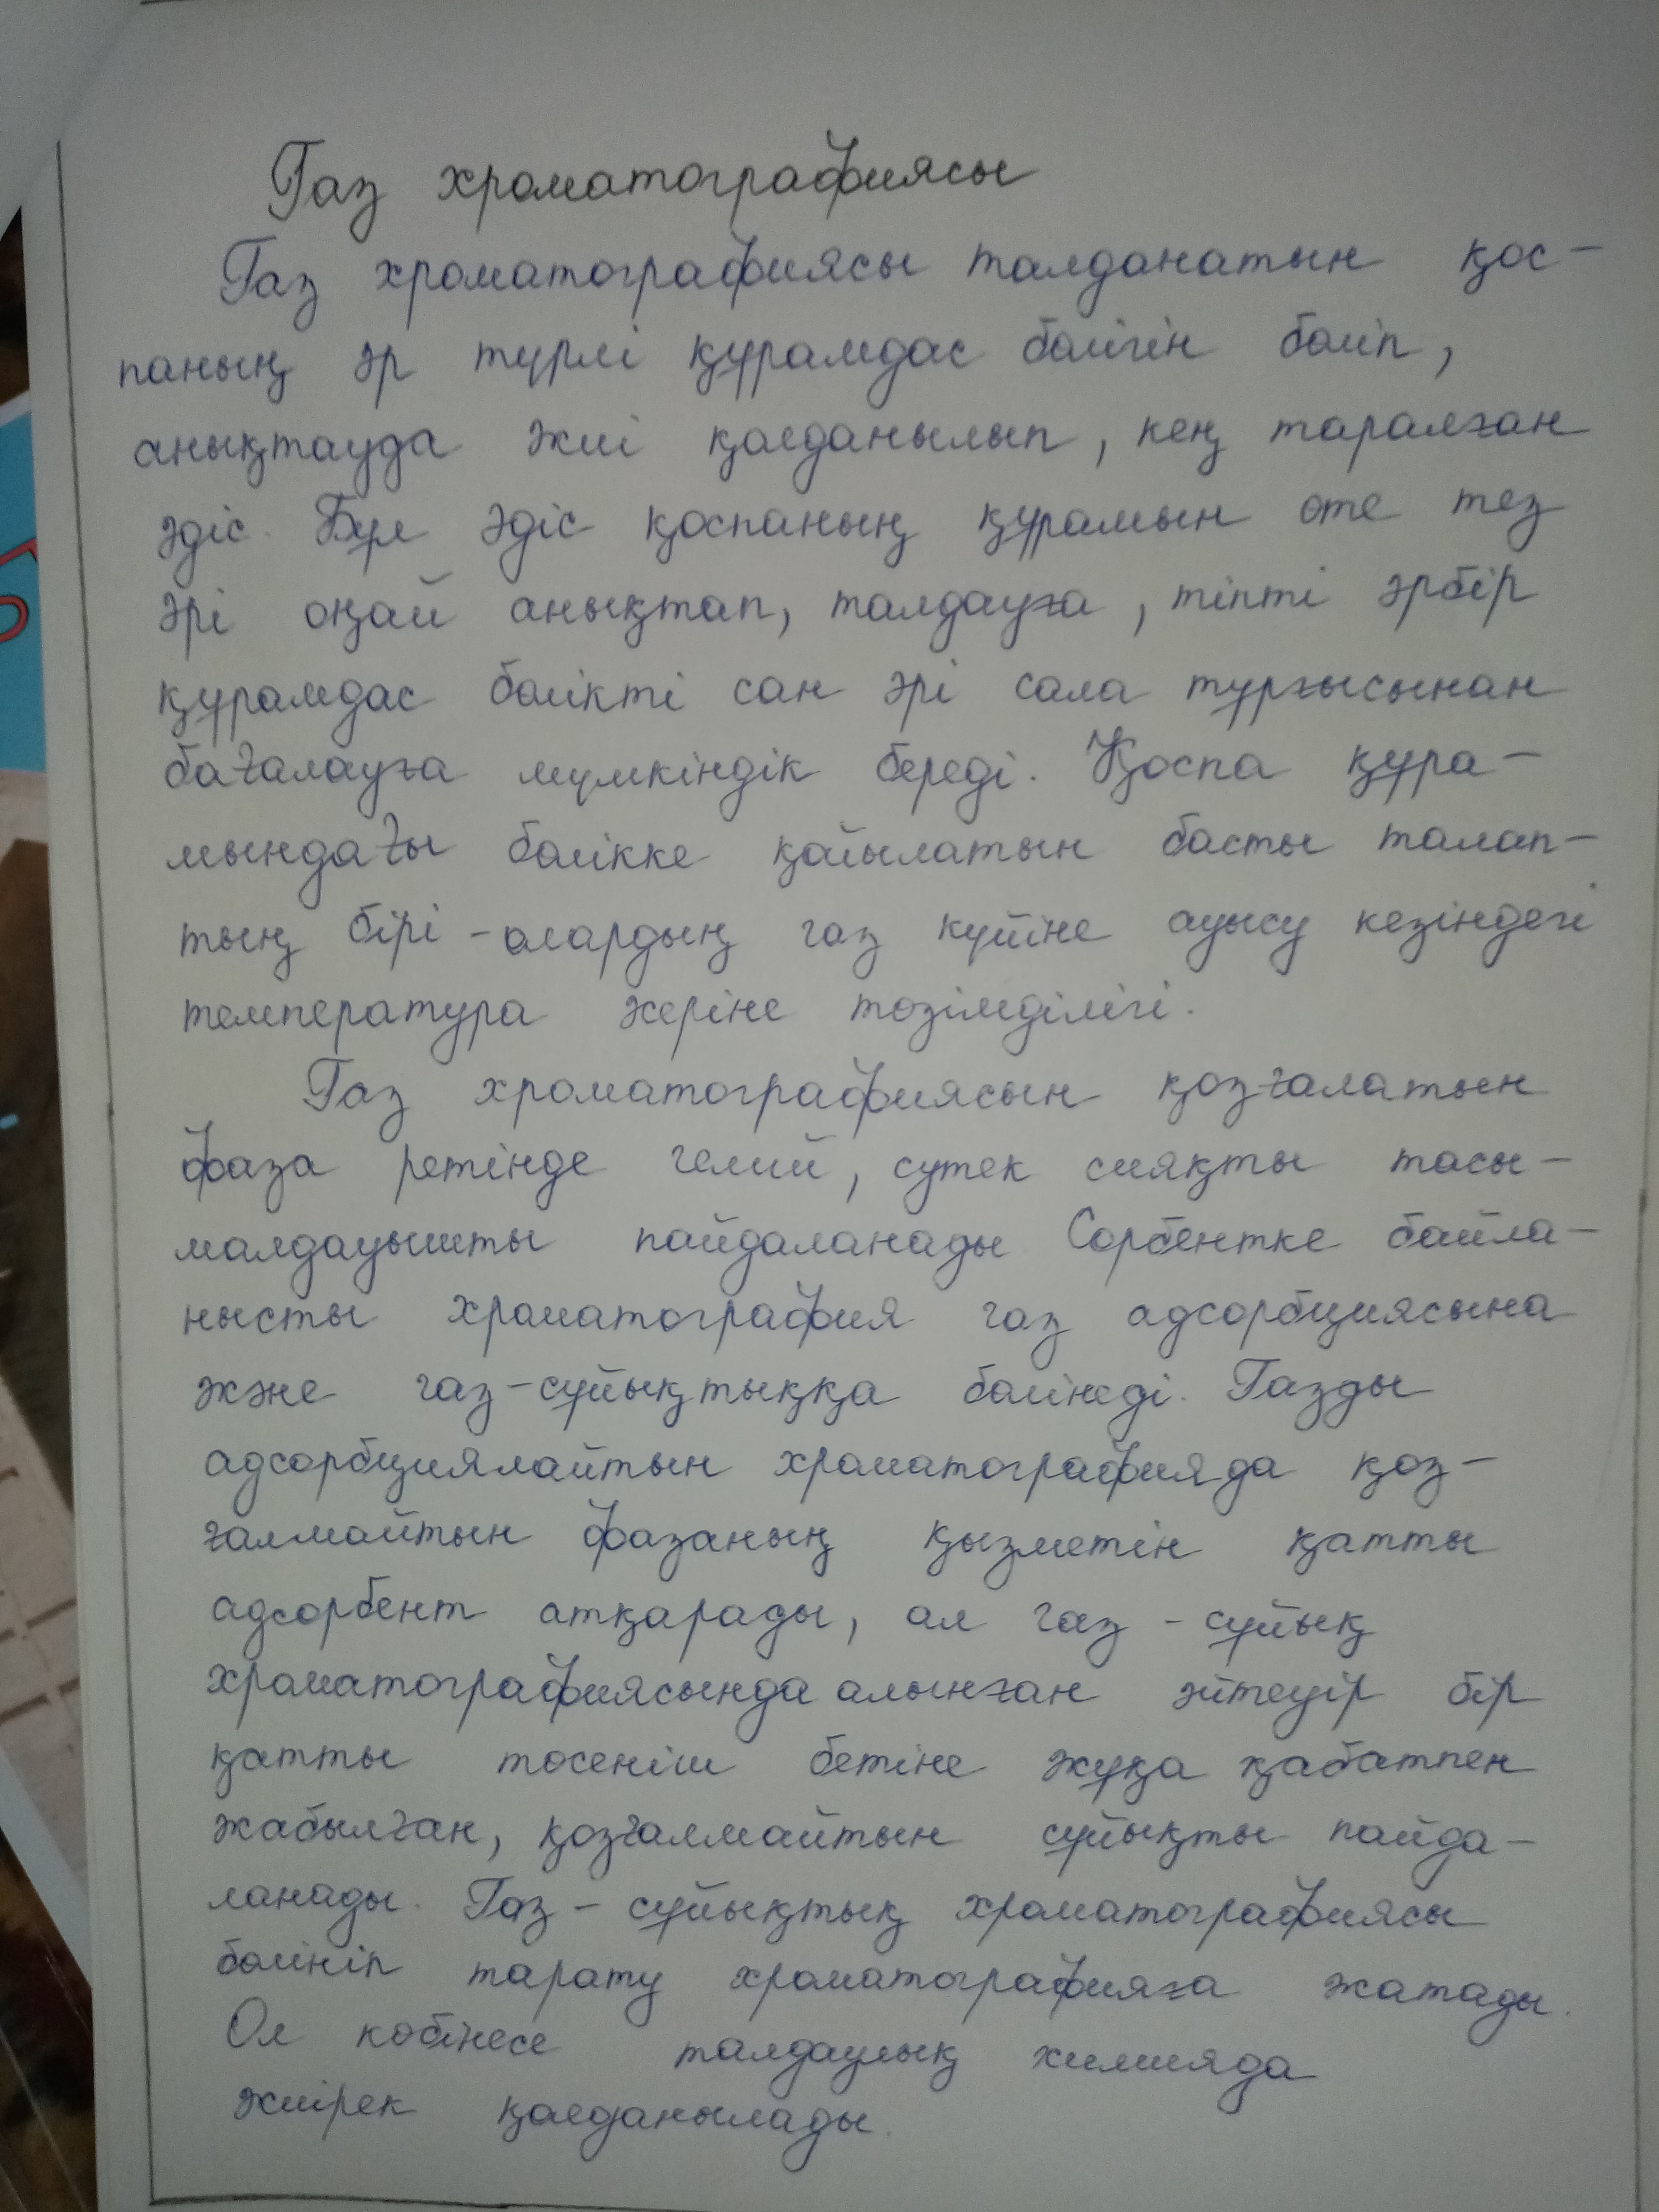 Газ хроматографиясы
Газ хроматографиясы талданатын қос-
паның әр түрлі құрамдас бөлігін бөліп,
анықтауда жиі қолданылып, кең таралған
әдіс. Бұл әдіс қоспаның құрамын өте тез
әрі оңай анықтап, талдауға, тіпті әрбір
құрамдас бөлікті сан әрі сапа тұрғысынан
бағалауға мүмкіндік береді. Қоспа құра-
мындағы бөлікке қойылатын басты талап-
тың бірі - олардың газ күйіне ауысу кезіндегі
температура жеріне төзімділігі.
Газ хроматографиясын қозғалатын
фаза ретінде гелий, сутек сияқты тасы-
малдауышты пайдаланады Сорбентке байла-
нысты хроматография газ адсорбциясына
және газ-сұйықтыққа бөлінеді. Газды
адсорбциялайтын хроматографияда қоз-
ғалмайтын фазаның қызметін қатты
адсорбент атқарады, ал газ - сұйық
хроматографиясында алынған әйтеуір бір
қатты төсеніш бетіне жұқа қабатпен
жабылған, қозғалмайтын сұйықты пайда-
ланады. Газ - сұйықтық хроматографиясы
бөлініп тарату хроматографияға жатады.
Ол көбінесе талдаулық химияда
жиірек қолданылады.